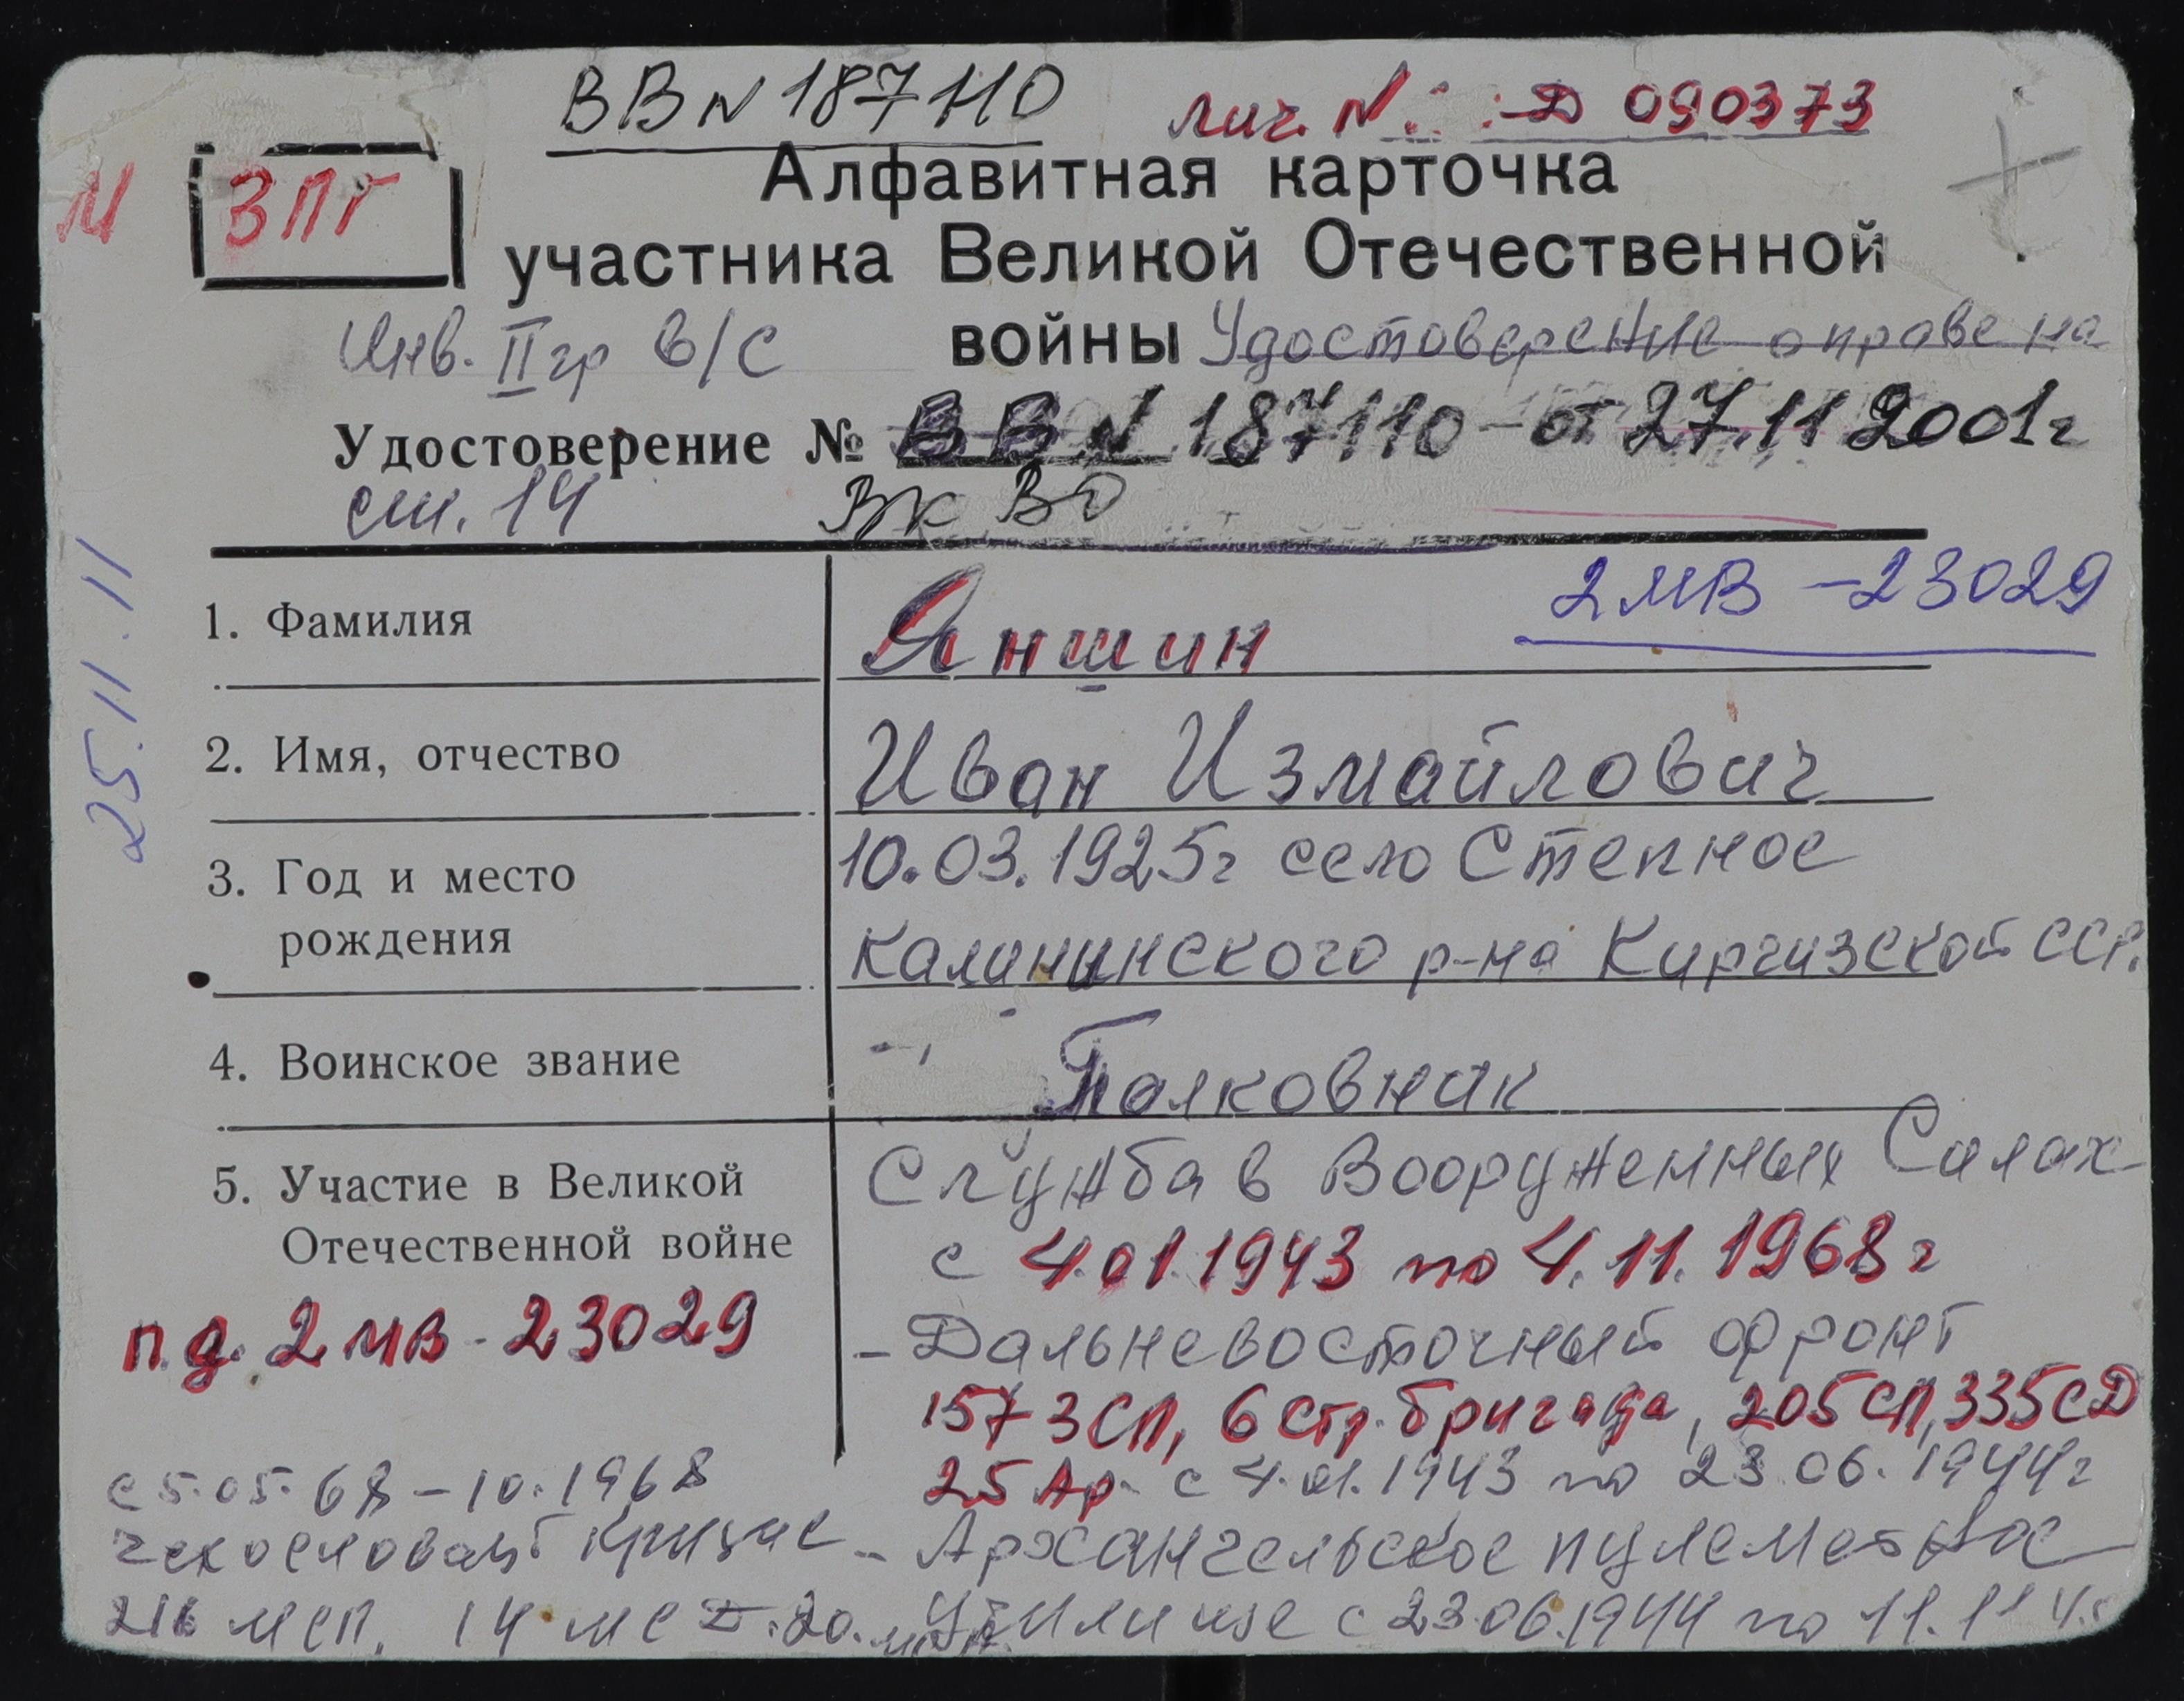 ВВ N 187110
лич. N: Д 090373
И ЗПГ
Алфавитная карточка
участника Великой Отечественной
войны Удостоверение о праве на
Инв. II гр в/с
Удостоверение № ВВ N 187110 - от 27.11 2001г
ст. 14 ВК ВО
25.11.11
2 МВ - 23029
1. Фамилия Яншин
2. Имя, отчество Иван Измайлович
3. Год и место рождения 10.03.1925г село Степное
Калининского р-на Киргизской ССР.
4. Воинское звание Полковник
5. Участие в Великой Отечественной войне Служба в Вооруженных Силах
с 4.01.1943 по 4.11.1968г
п.д. 2 МВ - 23029
- Дальневосточный фронт
157 ЗСП, 6 Стр. бригада, 205 СП, 335 СД
25 Ар. с 4.01.1943 по 23.06.1944г
- Архангельское пулеметное
училище с 23.06.1944 по 11.11 45
с 5.05.68 - 10.1968
чехословацк кризис
216 МСП. 14 МСД. 20.